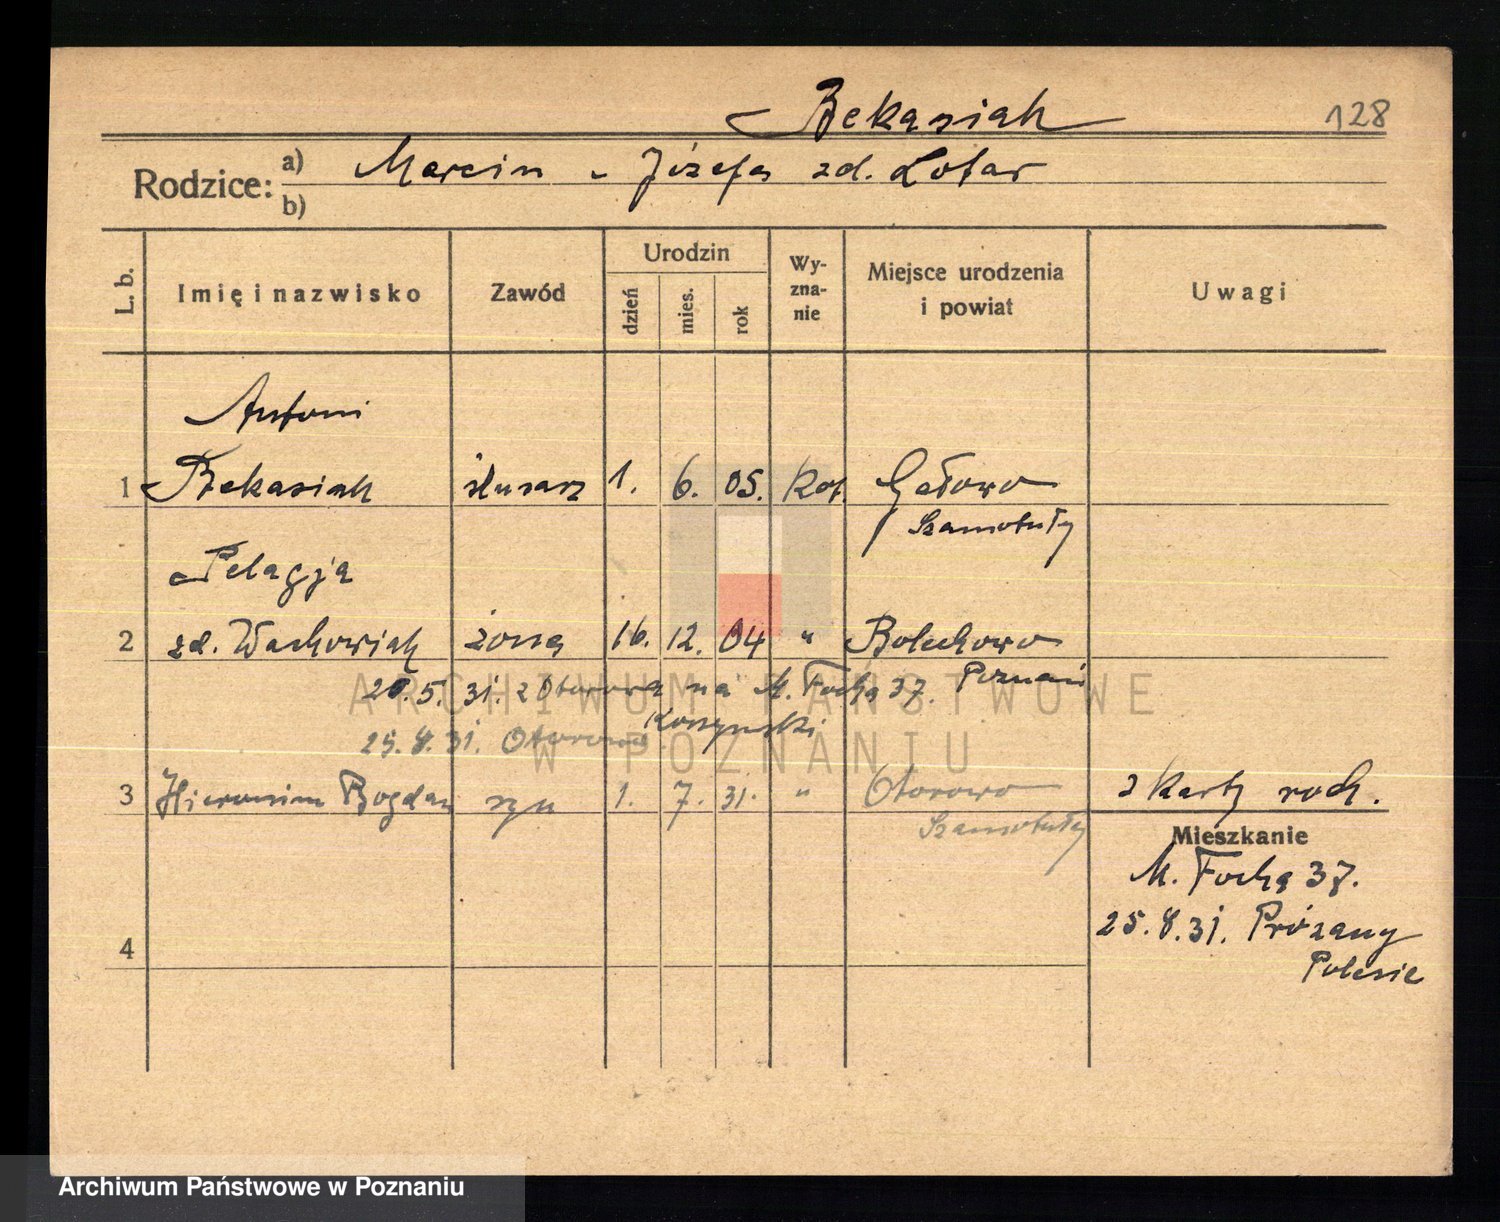 Bekasiak 128
Rodzice: a) Marcin - Józefa zd. Lotar
b)
L. b.
Imię i nazwisko
Zawód
Urodzin
dzień
mies.
rok
Wy-
zna-
nie
Miejsce urodzenia
i powiat
Uwagi
Antoni
1 Bekasiak ślusarz 1. 6. 05. Kat. Gałowo
Szamotuły
Pelagja
2 zd. Wachowiak żona 16. 12. 04 " Bolechowo
Poznań
20. 5. 31. z Otorowa na M. Focha 37.
Koszynski
25. 8. 31. Otorowo
3 Hieronim Bogdan syn 1. 7. 31. " Otorowo z karty rodz.
Szamotuły
Mieszkanie
M. Focha 37.
25. 8. 31. Prózany
Polesie
4
ARCHIWUM PAŃSTWOWE
W POZNANIU
Archiwum Państwowe w Poznaniu